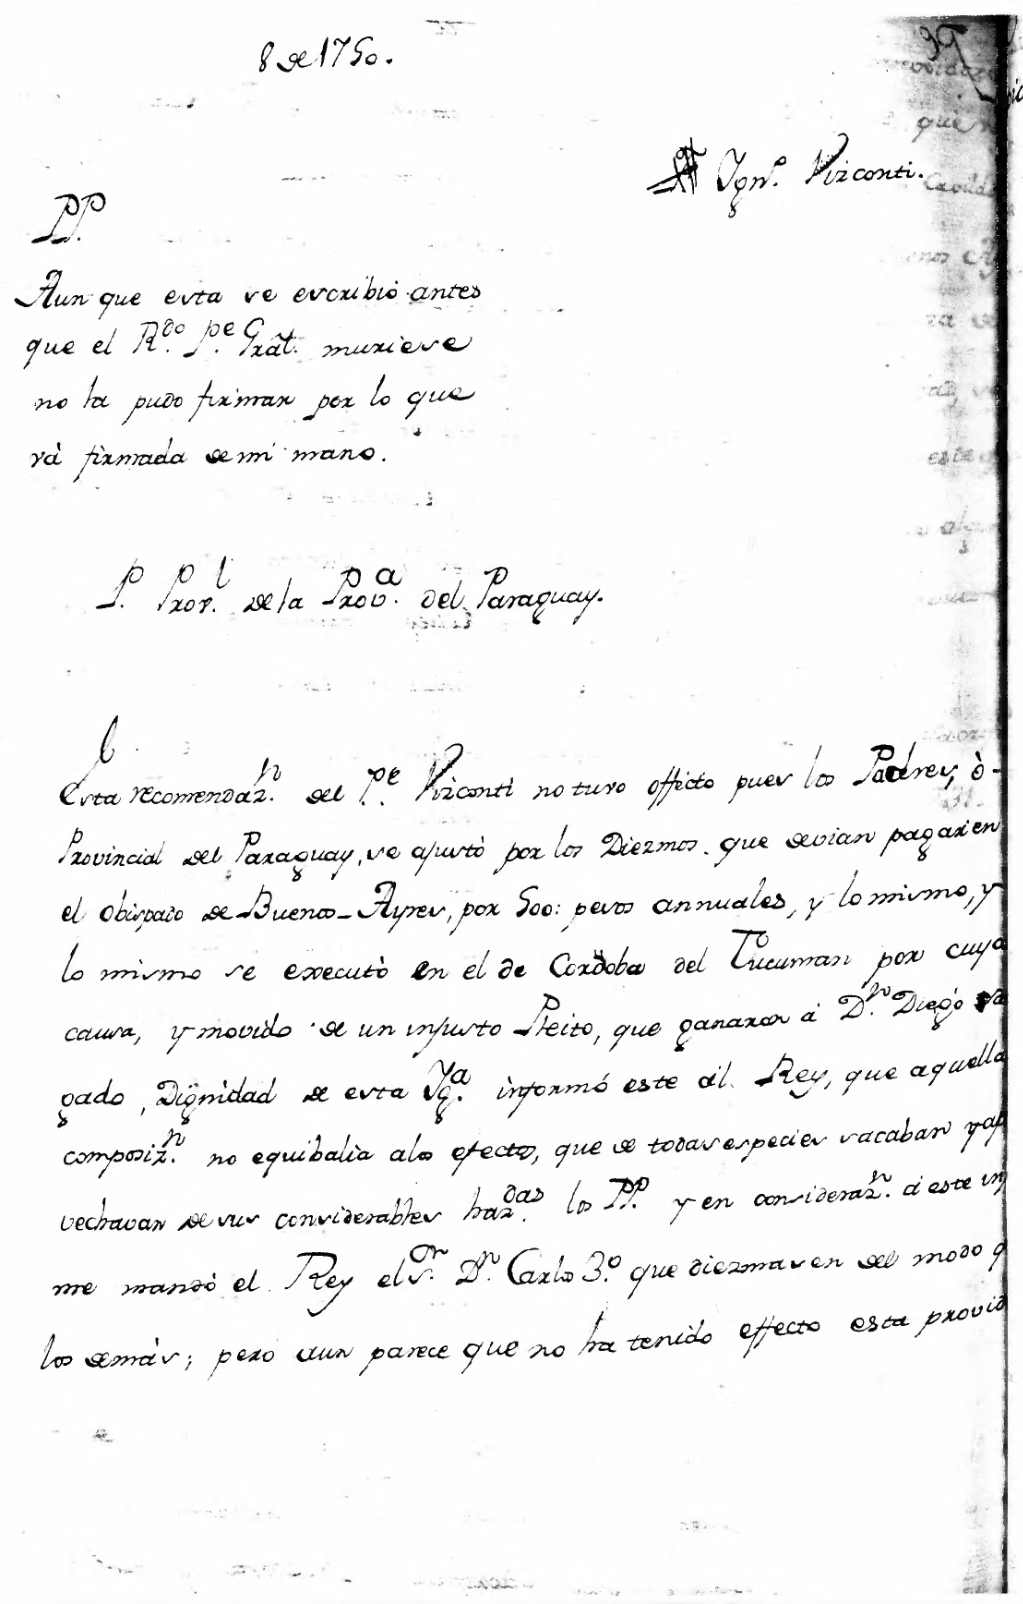 8 de 1750.
39
Ygn.º Vizconti.
PP.
Aun que esta se escribió antes
que el R.do P.e Grãt. muriese
no la pudo firmar por lo que
và firmada de mi mano.
P. Prov.l de la Prov.a del Paraguay.
Esta recomendaz.n del P.e Vizconti no tuvo effecto pues los Padres, ò
Provincial del Paraguay, se ajustò por los Diezmos que devian pagar en
el obispado de Buenos-Ayres, por 500: pesos annuales, y lo mismo, y
lo mismo se executò en el de Cordoba del Tucuman por cuya
causa, y movido de un injusto Pleito, que ganaron á D.n Diego
gado, Dignidad de esta Yg.a informó este al Rey, que aquella
composiz.n no equibalia alos efectos, que de todas especies sacaban y ap
vechavan de sus considerables haz.das los PP. y en consideraz.n á este inf
me mandó el Rey el S.or D.n Carlos 3.º que diezmasen del modo q
los demàs; pero aun parece que no ha tenido effecto esta provid